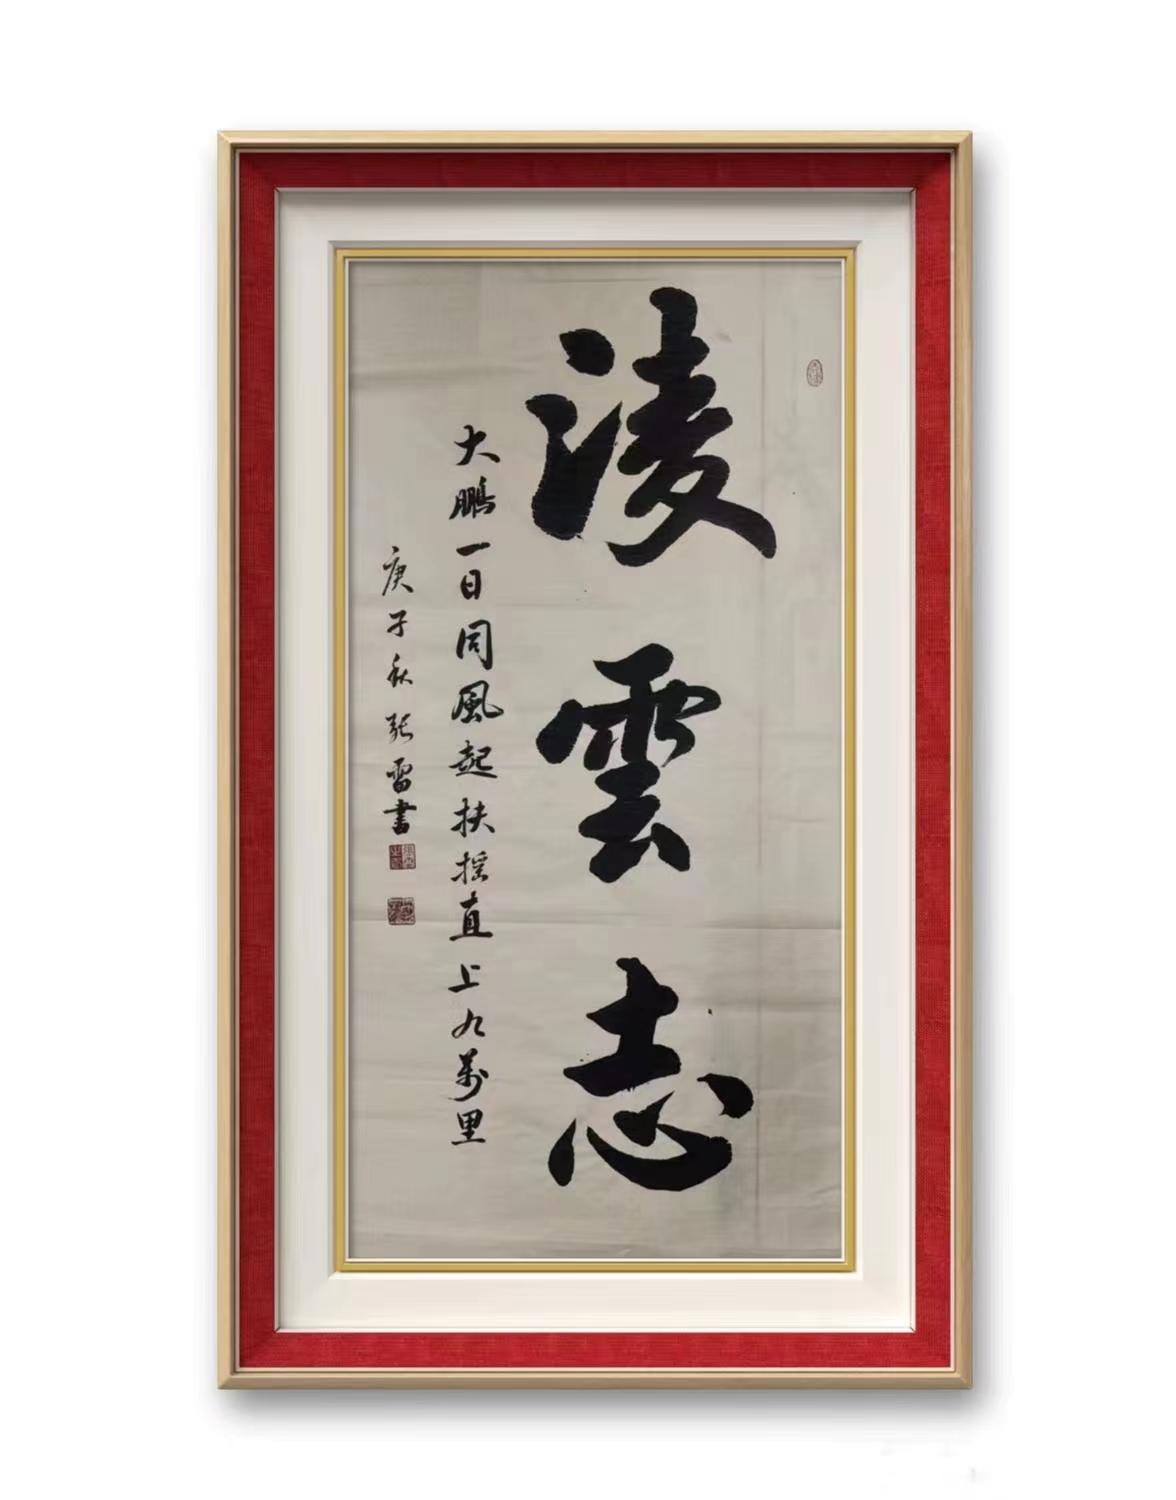 淩雲志
大鵬一日同風起扶搖直上九萬里
庚子秋張雷書